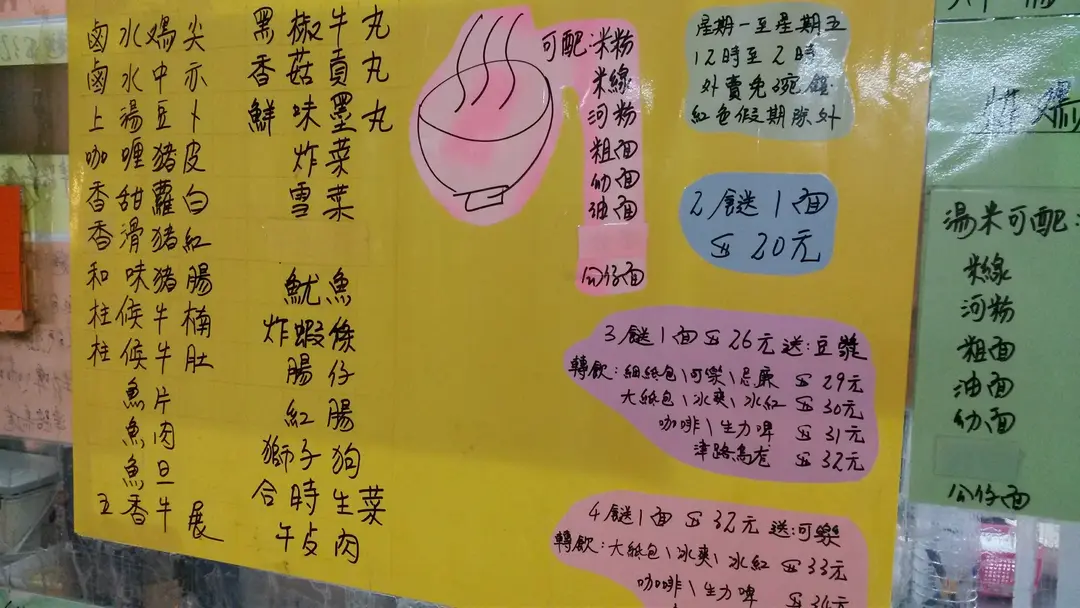 鹵水鳮尖
鹵水中亦
上湯豆卜
咖喱豬皮
香甜蘿白
香滑豬紅
和味豬腸
柱侯牛楠
柱侯牛肚
魚片
魚肉
魚旦
五香牛展
黑椒牛丸
香菇貢丸
鮮味墨丸
炸菜
雪菜
魷魚
炸蝦條
腸仔
紅腸
獅子狗
合時生菜
午歺肉
可配:米粉
米線
河粉
粗面
幼面
油面
公仔面
星期一至星期五
12時至2時
外賣免碗錢
紅色假期除外
2餸1面
$20元
3餸1面$26元送:豆漿
轉飲:細紙包\可樂\忌廉 $29元
大紙包\冰爽\冰紅 $30元
咖啡\生力啤 $31元
津路烏龙 $32元
4餸1面 $32元 送:可樂
轉飲:大紙包\冰爽\冰紅 $33元
咖啡\生力啤 $34元
湯米可配:
米線
河粉
粗面
油面
幼面
公仔面